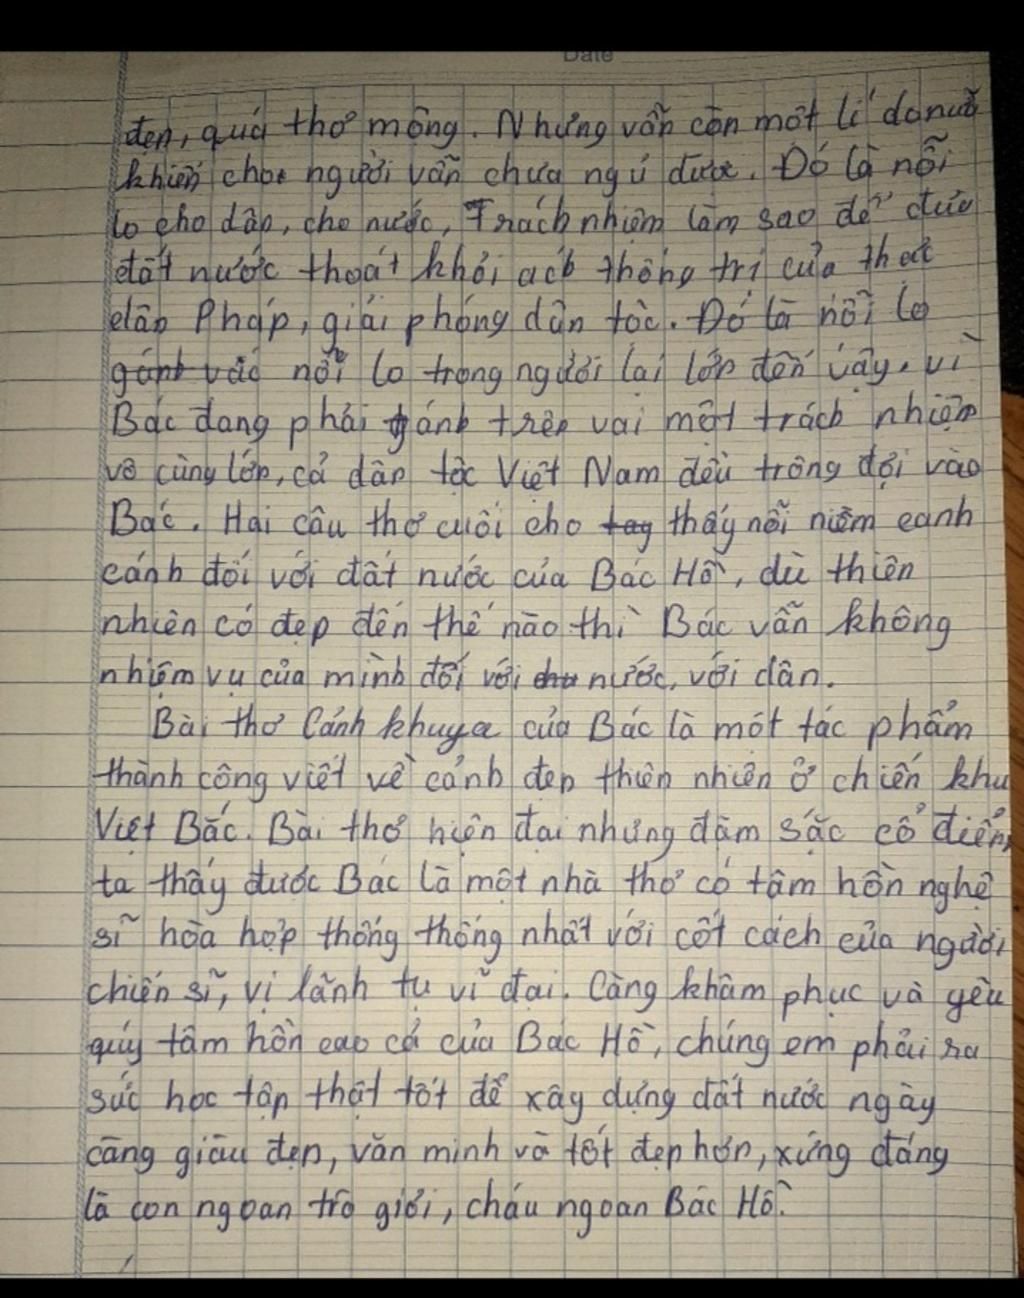 Date
đẹp, quá thơ mộng. Nhưng vẫn còn một lí do nữa
khiến cho người vẫn chưa ngủ được. Đó là nỗi
lo cho dân, cho nước, Trách nhiệm làm sao để đưa
đất nước thoát khỏi ách thống trị của thực
dân Pháp, giải phóng dân tộc. Đó là nỗi lo
gánh vác nỗi lo trong người lại lớn đến vậy, vì
Bác đang phải gánh trên vai một trách nhiệm
vô cùng lớn, cả dân tộc Việt Nam đều trông đợi vào
Bác. Hai câu thơ cuối cho tag thấy nỗi niềm canh
cánh đối với đất nước của Bác Hồ, dù thiên
nhiên có đẹp đến thế nào thì Bác vẫn không
nhiệm vụ của mình đối với nước, với dân.
Bài thơ Cảnh khuya của Bác là một tác phẩm
thành công viết về cảnh đẹp thiên nhiên ở chiến khu
Việt Bắc. Bài thơ hiện đại nhưng đậm sắc cổ điển,
ta thấy được Bác là một nhà thơ có tâm hồn nghệ
sĩ hòa hợp thống thống nhất với cốt cách của người
chiến sĩ, vị lãnh tụ vĩ đại. Càng khâm phục và yêu
quý tâm hồn cao cả của Bác Hồ, chúng em phải ra
sức học tập thật tốt để xây dựng đất nước ngày
càng giàu đẹp, văn minh và tốt đẹp hơn, xứng đáng
là con ngoan trò giỏi, cháu ngoan Bác Hồ.